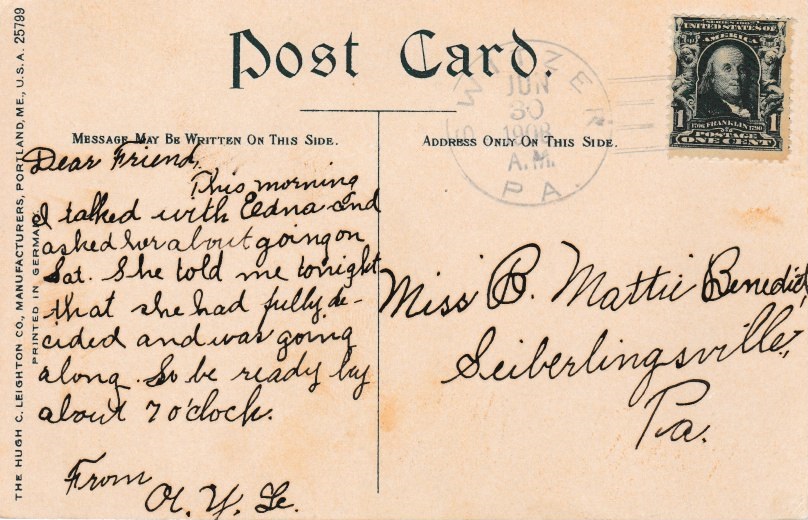 Post Card.
MESSAGE MAY BE WRITTEN ON THIS SIDE.
ADDRESS ONLY ON THIS SIDE.
THE HUGH C. LEIGHTON CO., MANUFACTURERS, PORTLAND, ME., U.S.A. 25799
PRINTED IN GERMANY
SERIES 1902
UNITED STATES OF
AMERICA
1 1
1706 FRANKLIN 1790
POSTAGE
ONE CENT
JUN
30
1908
A.M.
PA.
Dear Friend,
This morning
I talked with Eedna and
asked her about going on
Sat. She told me tonight
that she had fully de-
cided and was going
along. So be ready by
about 7 o'clock.
From
Miss B. Mattie Benedict,
Seiberlingsville,
Pa.